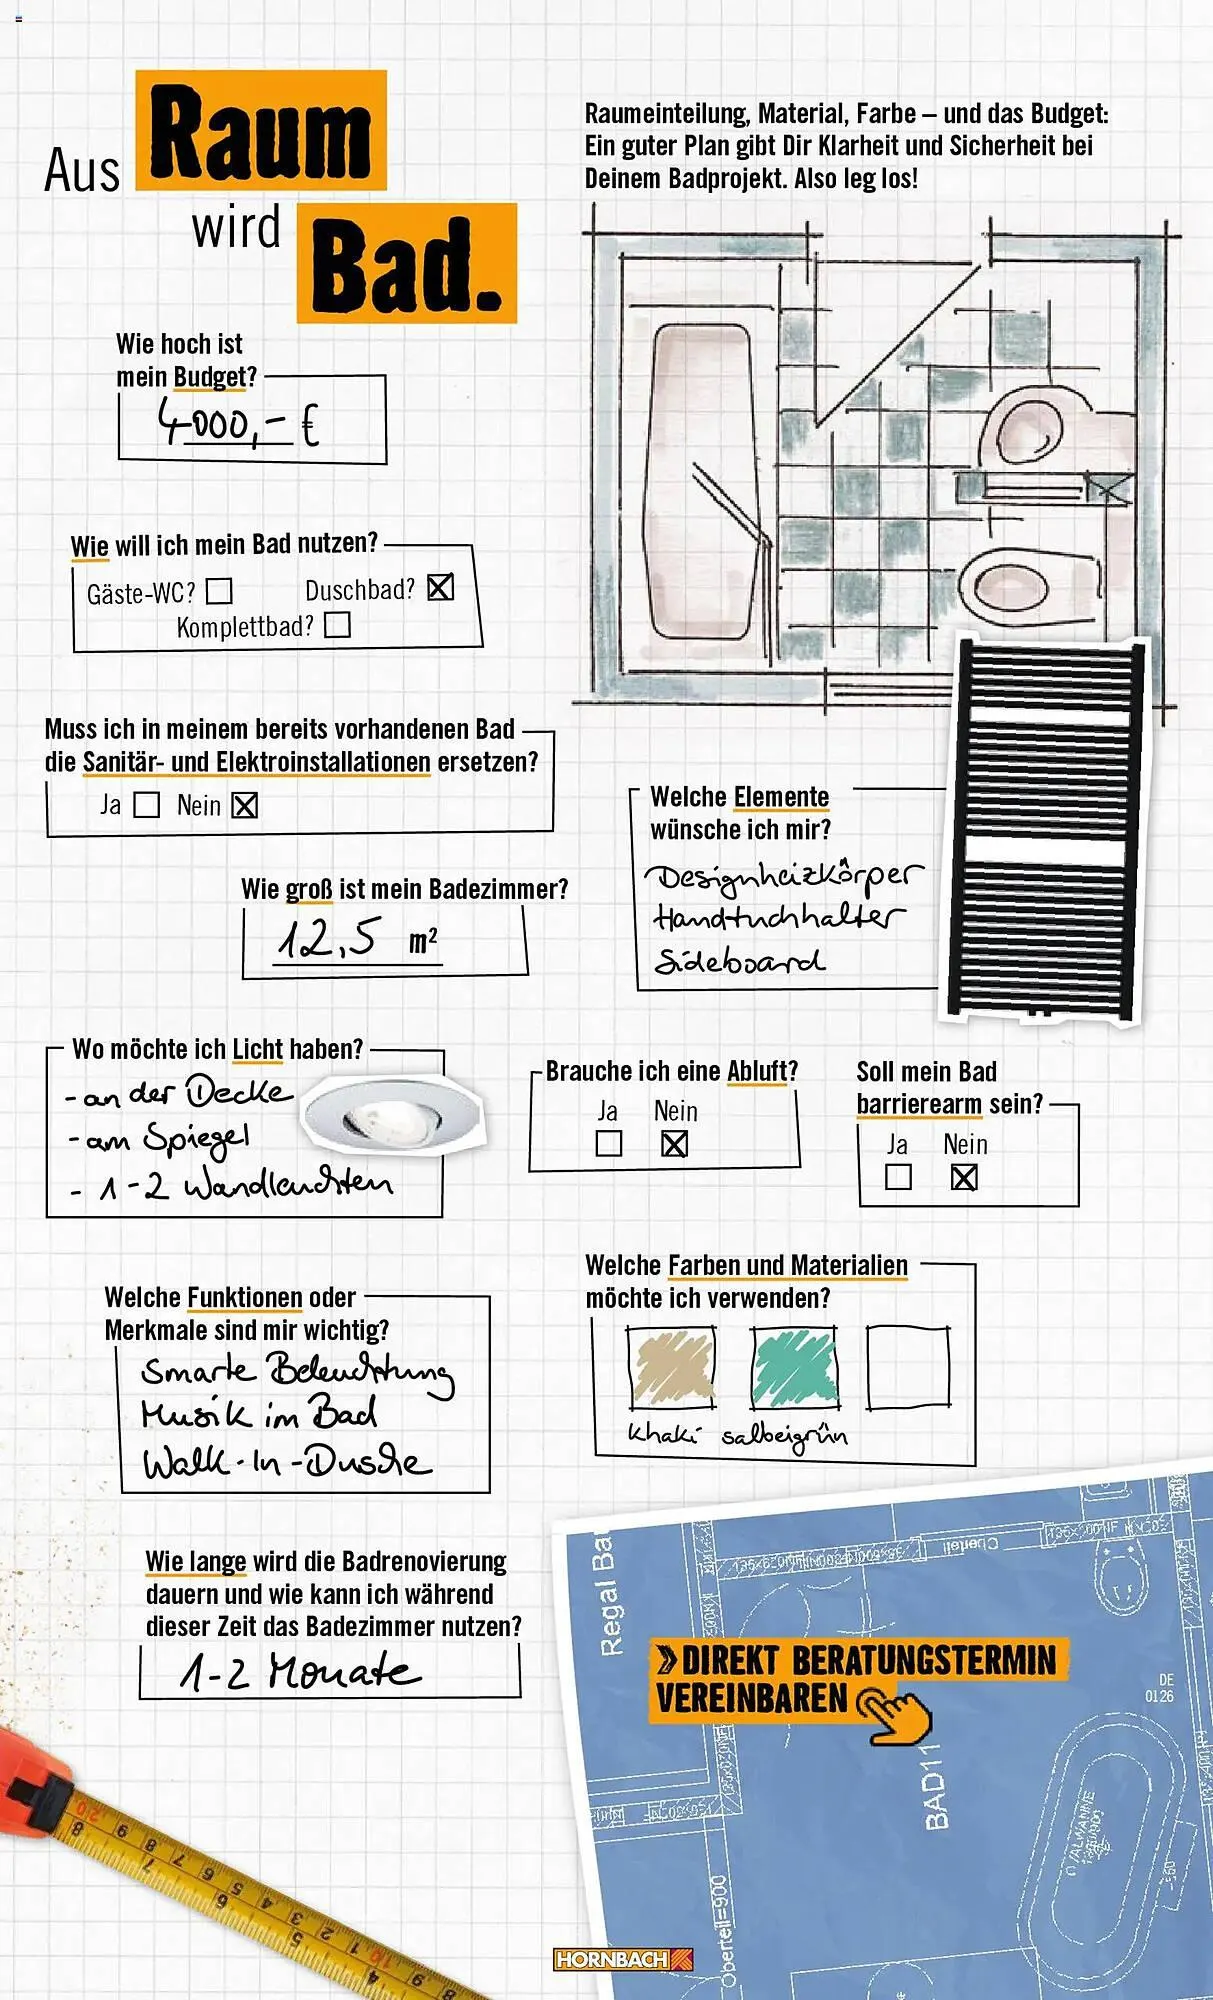 Aus Raum
wird Bad.
Raumeinteilung, Material, Farbe – und das Budget:
Ein guter Plan gibt Dir Klarheit und Sicherheit bei
Deinem Badprojekt. Also leg los!
Wie hoch ist
mein Budget?
4000,- €
Wie will ich mein Bad nutzen?
Gäste-WC? Duschbad?
Komplettbad?
Muss ich in meinem bereits vorhandenen Bad
die Sanitär- und Elektroinstallationen ersetzen?
Ja Nein
Wie groß ist mein Badezimmer?
12,5 m²
Welche Elemente
wünsche ich mir?
Designheizkörper
Handtuchhalter
Sideboard
Wo möchte ich Licht haben?
- an der Decke
- am Spiegel
- 1-2 Wandleuchten
Brauche ich eine Abluft?
Ja Nein
Soll mein Bad
barrierearm sein?
Ja Nein
Welche Funktionen oder
Merkmale sind mir wichtig?
Smarte Beleuchtung
Musik im Bad
Walk-In-Dusche
Welche Farben und Materialien
möchte ich verwenden?
Khaki salbeigrün
Wie lange wird die Badrenovierung
dauern und wie kann ich während
dieser Zeit das Badezimmer nutzen?
1-2 Monate
Regal Ba
» DIREKT BERATUNGSTERMIN
VEREINBAREN
DE
0126
BAD11
Oberteil=900
HORNBACH